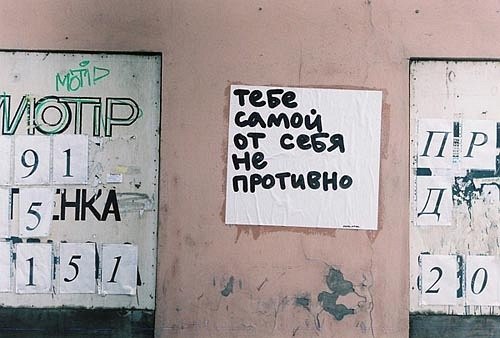 MOTIP
MOTIP
91
5
ЕНКА
151
тебе
самой
от себя
не
противно
ПР
Д
20